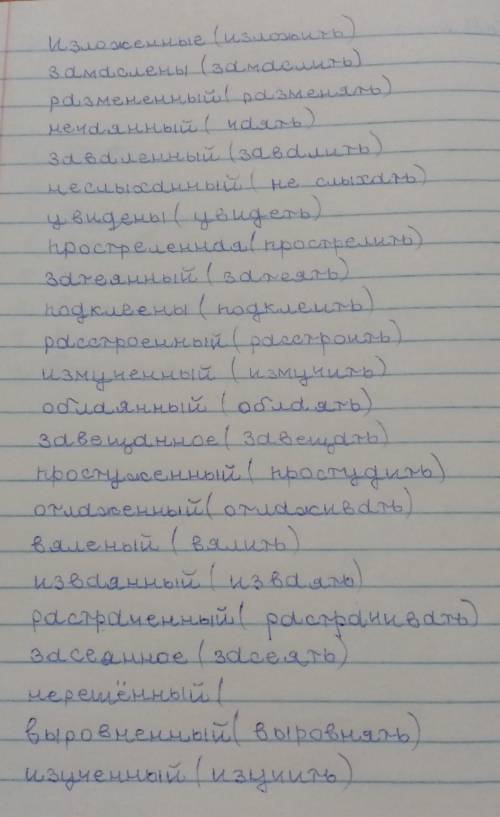 Изложенные (изложить)
замаслены (замаслить)
размененный (разменять)
нечаянный (чаять)
заваленный (завалить)
неслыханный (не слыхать)
увидены (увидеть)
простреленная (прострелить)
затеянный (затеять)
подклеены (подклеить)
расстроенный (расстроить)
измученный (измучить)
облаянный (облаять)
завещанное (завещать)
простуженный (простудить)
отлаженный (отлаживать)
вяленый (вялить)
изваянный (изваять)
растраченный (растрачивать)
засеянное (засеять)
нерешённый (
выровненный (выровнять)
изученный (изучить)